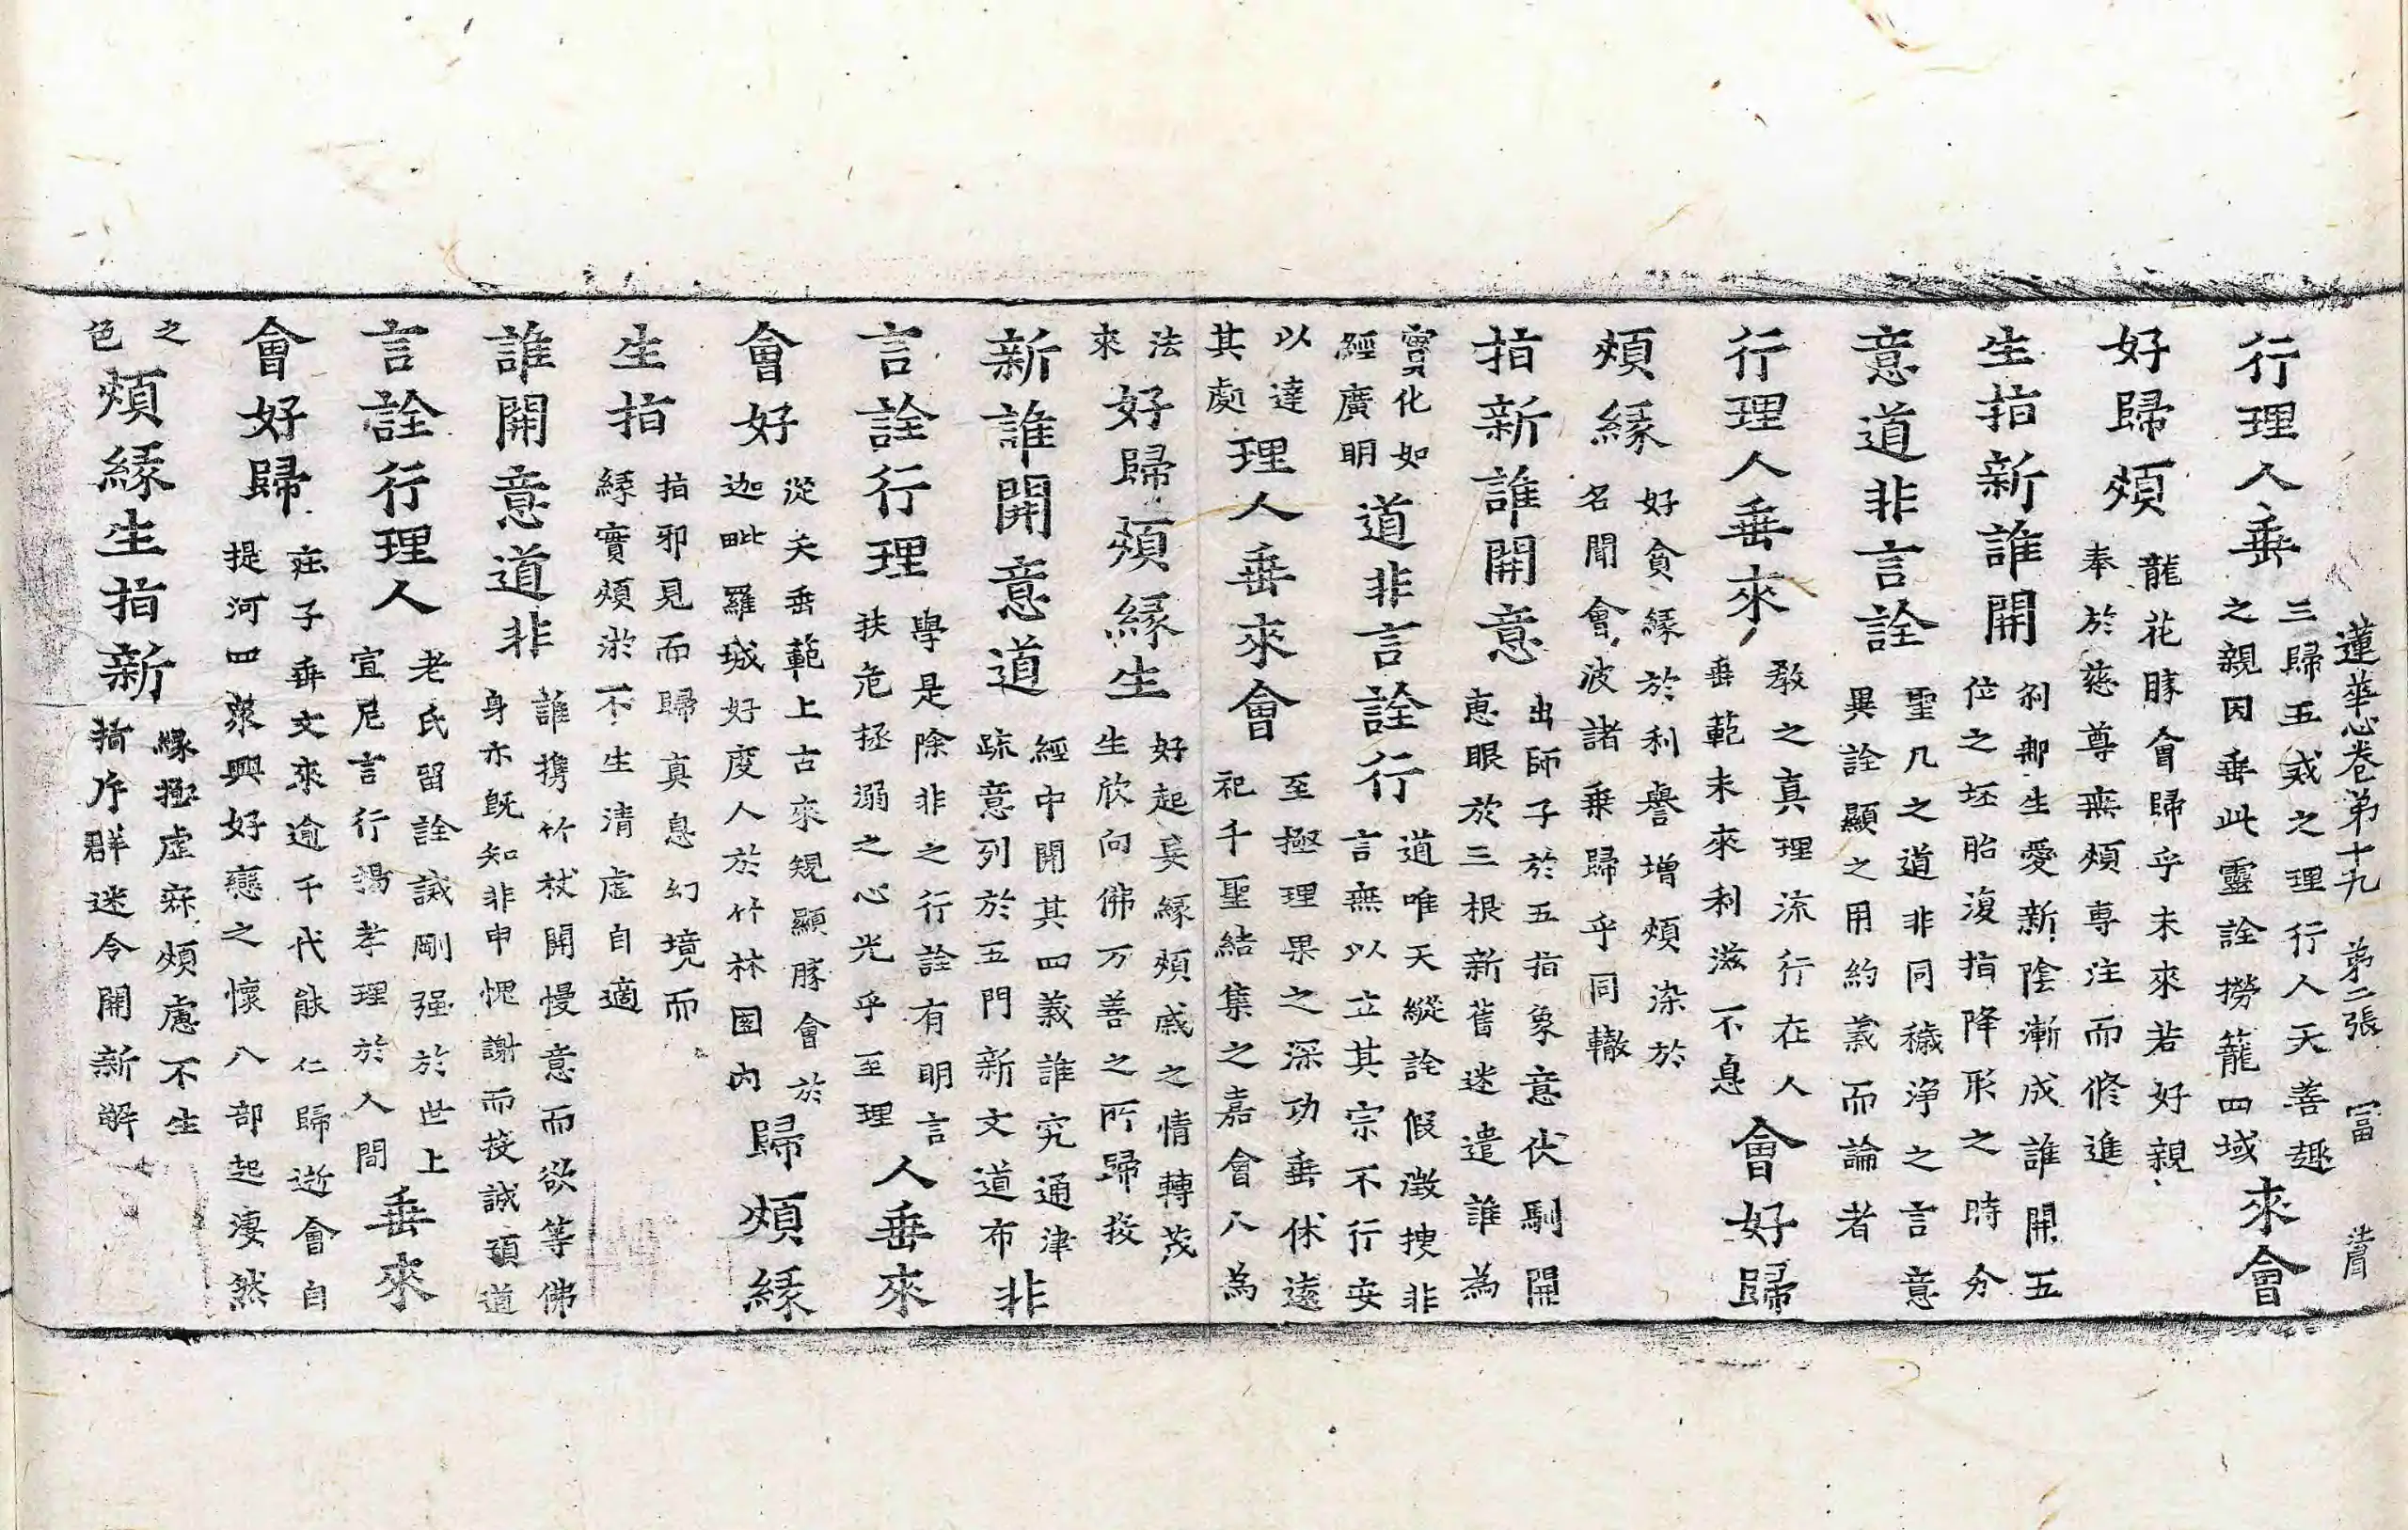 蓮華心卷第十九 第二張 富
行理人垂
三歸五戒之理行人天善趣
之親因垂此靈詮撈籠四域
來會
好歸煩
龍花勝會歸乎未來若好親
奉於慈尊無煩專注而修進
生指新誰開
剎那生愛新陰漸成誰開五
位之坯胎復指降形之時分
意道非言詮
聖凡之道非同穢淨之言意
異詮顯之用約義而論者
行理人垂來
教之真理流行在人
垂範未來利滋不息
會好歸
煩緣
好貪緣於利譽增煩染於
名聞會波諸乘歸乎同轍
指新誰開意
出師子於五指象意伏馴開
惠眼於三根新舊迷遣誰為
實化如
經廣明
道非言詮行
道唯天縱詮假徵捜非
言無以立其宗不行安
以達
其處
理人垂來會
至極理果之深功垂休遠
祀千聖結集之嘉會人為
法
來
好歸煩緣生
好起妄緣煩慼之情轉茂
生欣向佛万善之所歸投
新誰開意道
經中開其四義誰究通津
疏意列於五門新文道布
非
言詮行理
學是除非之行詮有明言
扶危拯溺之心光乎至理
人垂來
會好
從矣垂範上古來規顯勝會於
迦毗羅城好度人於竹林園內
歸煩緣
生指
指邪見而歸真息幻境而
緣實煩淤不生清虛自適
誰開意道非
誰攜竹杖開慢意而欲等佛
身亦既知非申愧謝而投誠頭道
言詮行理人
老氏留詮誡剛强於世上
宣尼言行揚孝理於人間
垂來
會好歸
莊子垂文來逾千代能仁歸逝會自
提河四衆興好戀之懷八部起淒然
之
色
煩緣生指新
緣極虛寂煩慮不生
指斥群迷令開新解